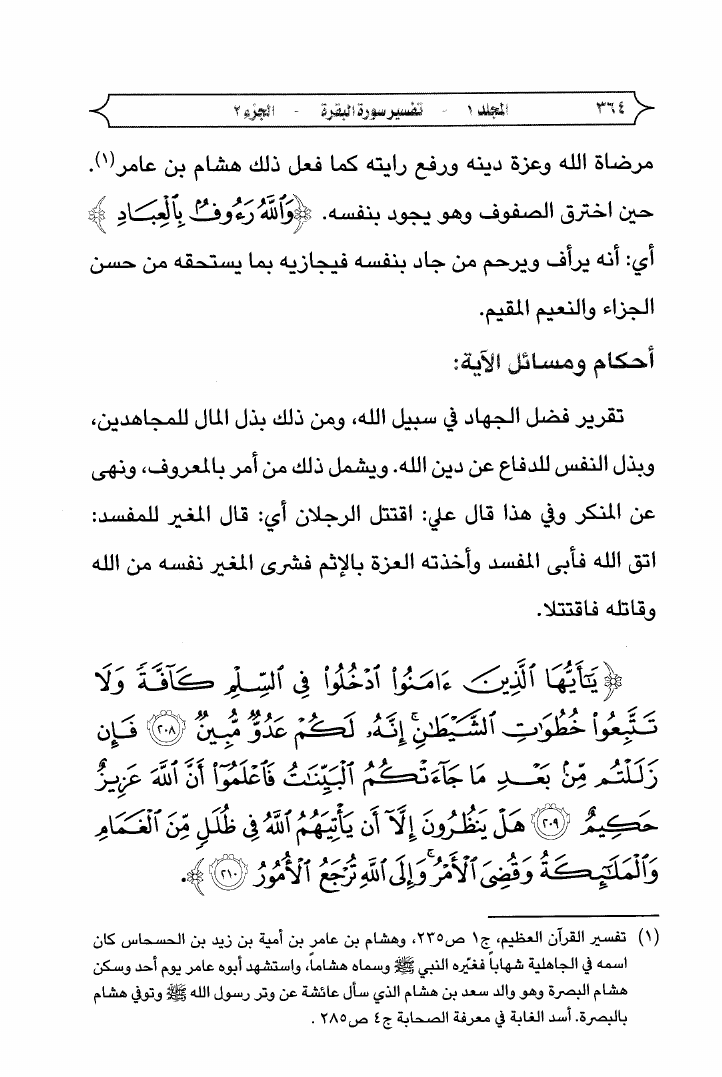 ٣٦٤ المجلد ١ - تفسير سورة البقرة - الجزء ٢
مرضاة الله وعزة دينه ورفع رايته كما فعل ذلك هشام بن عامر(١).
حين اخترق الصفوف وهو يجود بنفسه. ﴿وَٱللَّهُ رَءُوفٌۢ بِٱلۡعِبَادِ﴾
أي: أنه يرأف ويرحم من جاد بنفسه فيجازيه بما يستحقه من حسن
الجزاء والنعيم المقيم.
أحكام ومسائل الآية:
تقرير فضل الجهاد في سبيل الله، ومن ذلك بذل المال للمجاهدين،
وبذل النفس للدفاع عن دين الله. ويشمل ذلك من أمر بالمعروف، ونهى
عن المنكر وفي هذا قال علي: اقتتل الرجلان أي: قال المغير للمفسد:
اتق الله فأبى المفسد وأخذته العزة بالإثم فشرى المغير نفسه من الله
وقاتله فاقتتلا.
﴿يَٰٓأَيُّهَا ٱلَّذِينَ ءَامَنُواْ ٱدۡخُلُواْ فِي ٱلسِّلۡمِ كَآفَّةٗ وَلَا
تَتَّبِعُواْ خُطُوَٰتِ ٱلشَّيۡطَٰنِۚ إِنَّهُۥ لَكُمۡ عَدُوّٞ مُّبِينٞ ٢٠٨ فَإِن
زَلَلۡتُم مِّنۢ بَعۡدِ مَا جَآءَتۡكُمُ ٱلۡبَيِّنَٰتُ فَٱعۡلَمُوٓاْ أَنَّ ٱللَّهَ عَزِيزٌ
حَكِيمٌ ٢٠٩ هَلۡ يَنظُرُونَ إِلَّآ أَن يَأۡتِيَهُمُ ٱللَّهُ فِي ظُلَلٖ مِّنَ ٱلۡغَمَامِ
وَٱلۡمَلَٰٓئِكَةُ وَقُضِيَ ٱلۡأَمۡرُۚ وَإِلَى ٱللَّهِ تُرۡجَعُ ٱلۡأُمُورُ ٢١٠﴾.
(١) تفسير القرآن العظيم، ج١ ص٢٣٥، وهشام بن عامر بن أمية بن زيد بن الحسحاس كان
اسمه في الجاهلية شهاباً فغيّره النبي ﷺ وسماه هشاماً، واستشهد أبوه عامر يوم أحد وسكن
هشام البصرة وهو والد سعد بن هشام الذي سأل عائشة عن وتر رسول الله ﷺ وتوفي هشام
بالبصرة. أسد الغابة في معرفة الصحابة ج٤ ص٢٨٥.